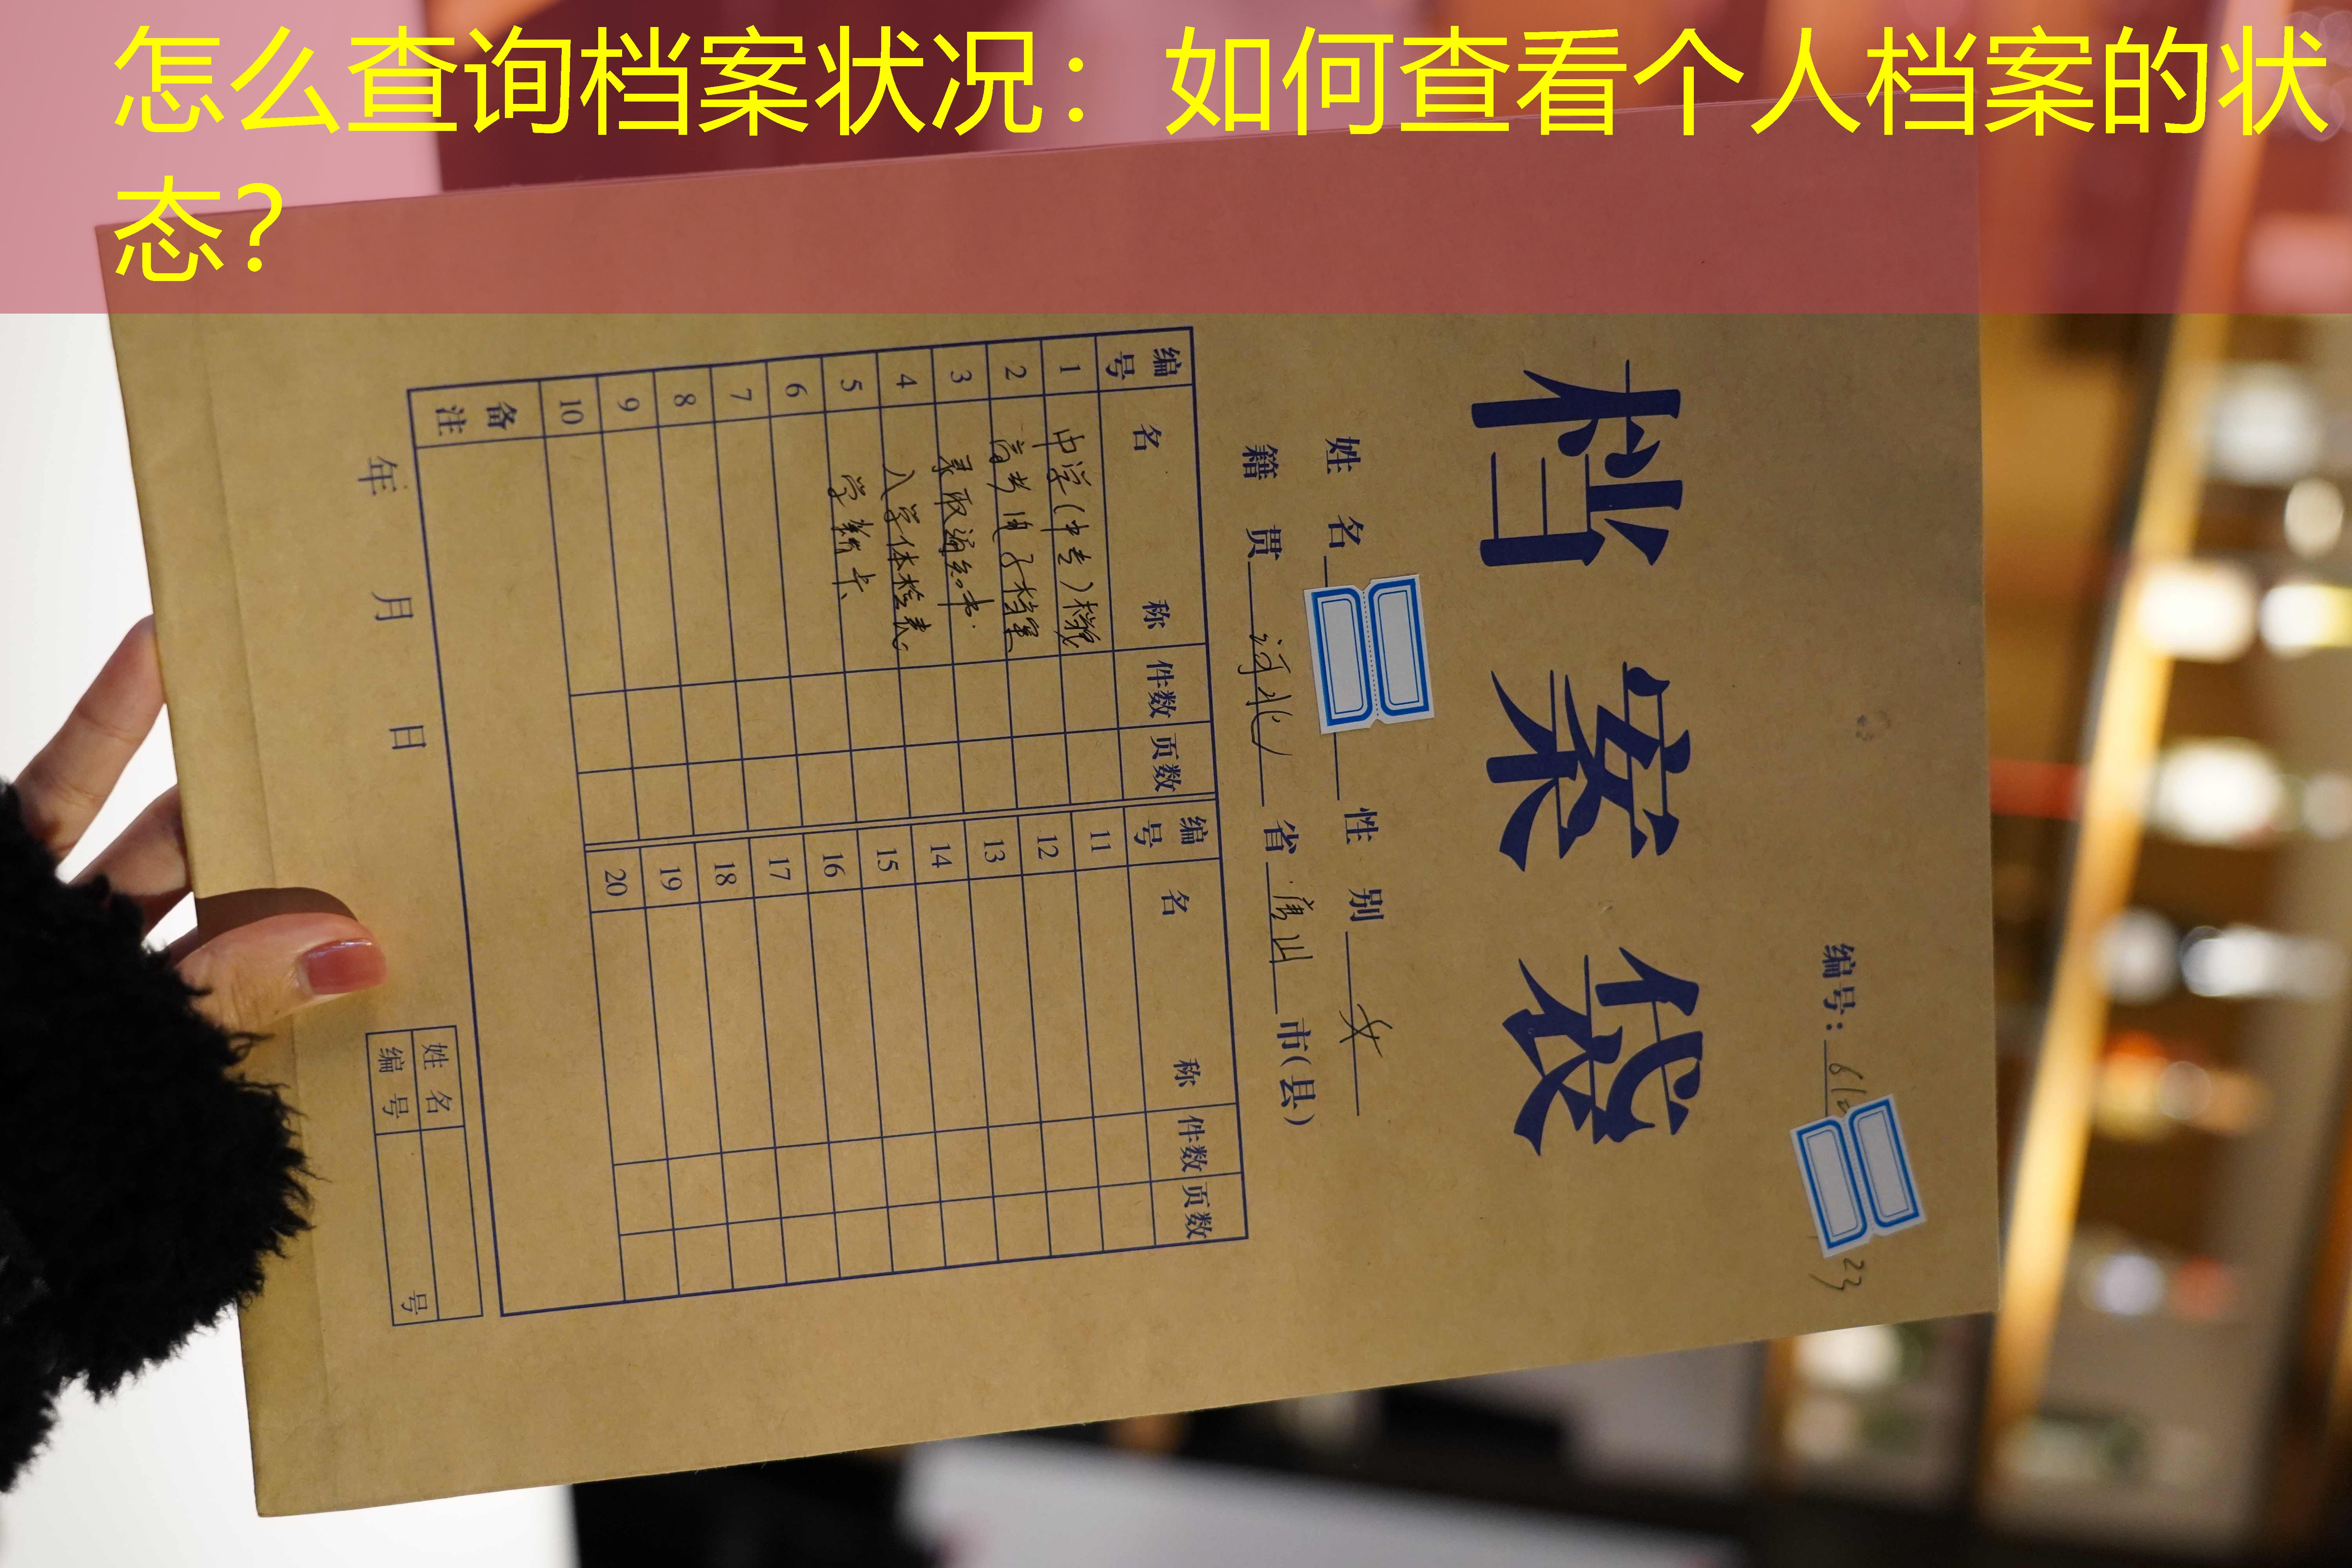 怎么查询档案状况：如何查看个人档案的状
态？
编号：
23
档案袋
姓名 性别 女
籍贯 河北 省 唐山 市(县)
编号 名称 件数 页数 编号 名称 件数 页数
1 中学(中专)档案 11
2 高考电子档案 12
3 录取通知书 13
4 入学体检表 14
5 学籍卡 15
6 16
7 17
8 18
9 19
10 20
备注
年 月 日
姓名
编号 号